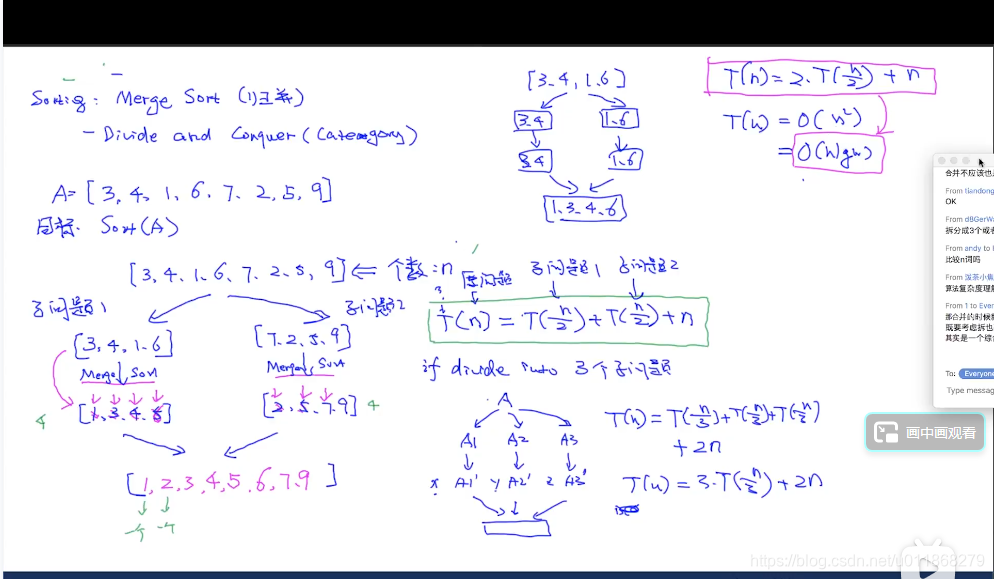 Sorting: Merge Sort (归并)
- Divide and Conquer (Category)
A= [3, 4, 1, 6, 7, 2, 5, 9]
目标: Sort(A)
[3, 4, 1, 6, 7, 2, 5, 9] ⇐ 个数:n
子问题1
子问题2
[3, 4, 1, 6]
[7, 2, 5, 9]
Merge Sort
Merge Sort
[1, 3, 4, 6]
[2, 5, 7, 9]
4
4
[1, 2, 3, 4, 5, 6, 7, 9]
[3, 4, 1, 6]
3, 4
1, 6
3, 4
1, 6
[1, 3, 4, 6]
T(n) = 2·T(n/2) + n
T(n) = O(n²)
= O(n lgn)
原问题 子问题1 子问题2
T(n) = T(n/2) + T(n/2) + n
if divide into 3个子问题
A
A1 A2 A3
x A1' y A2' z A3'
T(n) = T(n/3) + T(n/3) + T(n/3)
+ 2n
T(n) = 3·T(n/3) + 2n
合并不应该也
From tiandong
OK
From d8GerW
拆分成3个或
From andy to
比较n词吗
From 菠茶小集
算法复杂度理
From 1 to Ever
那合并的时候
既要考虑拆也
其实是一个综
To: Everyone
Type message
画中画观看
https://blog.csdn.net/u014868279